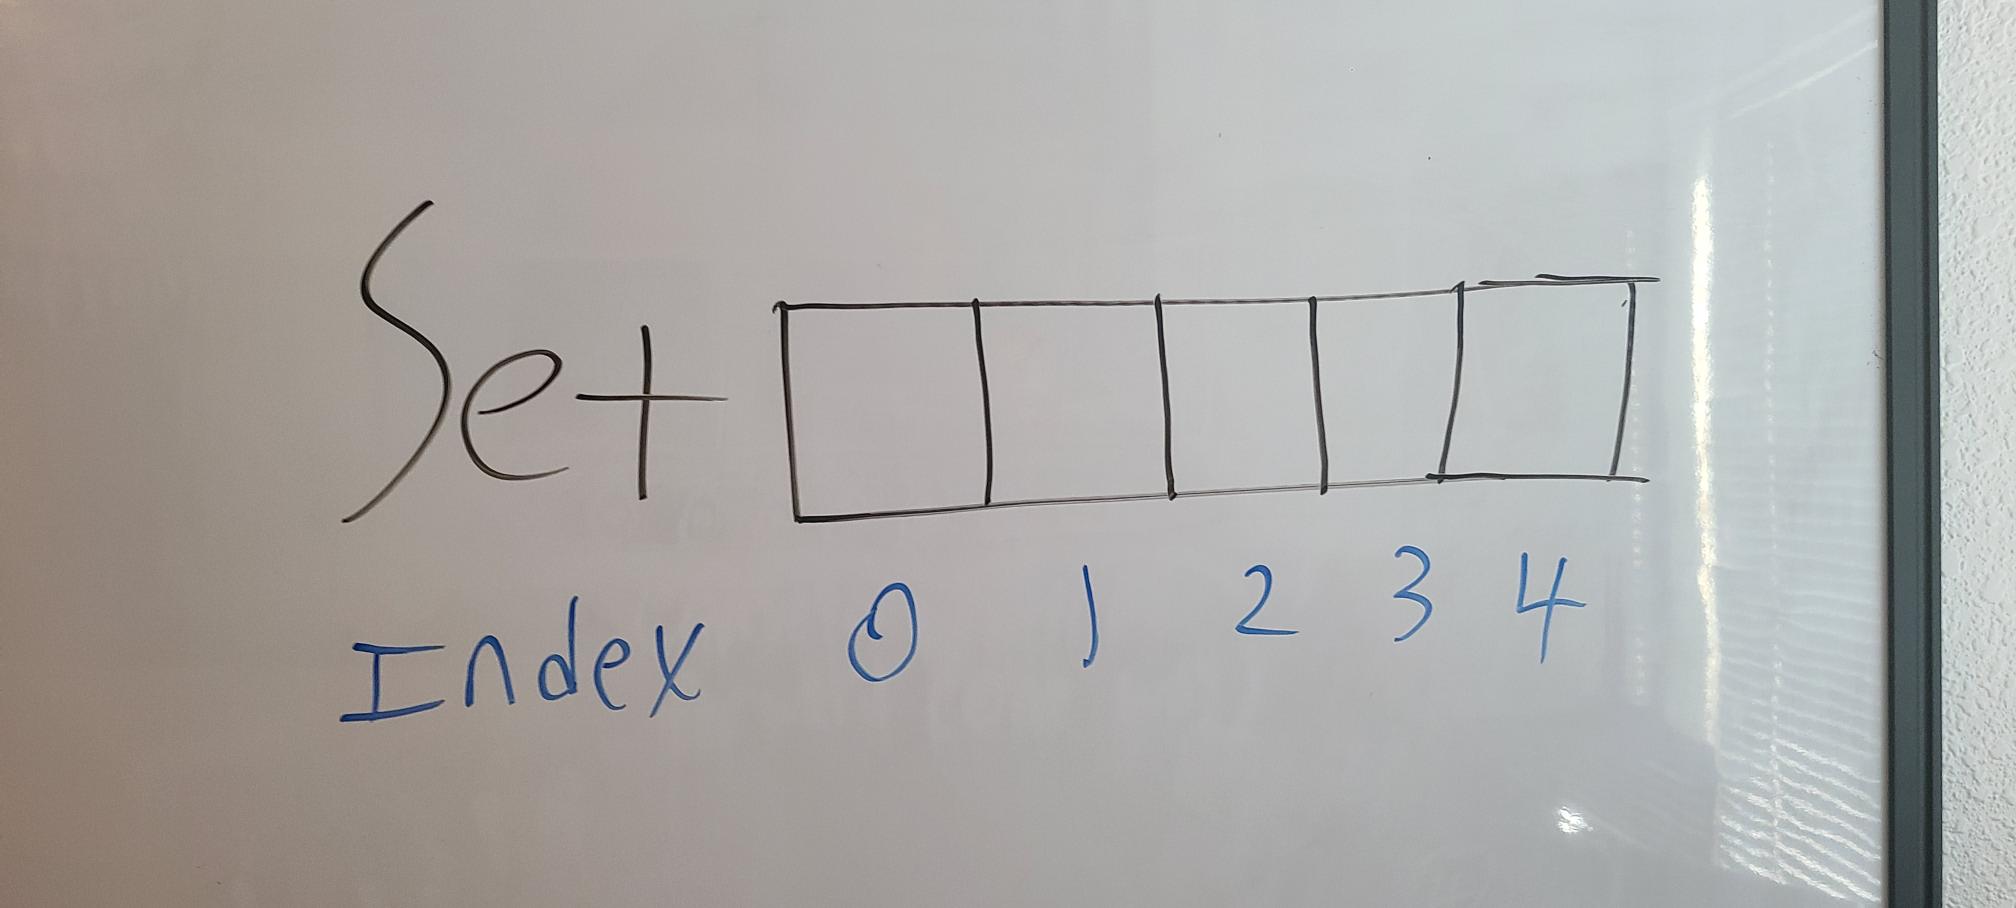 Set
Index 0 1 2 3 4